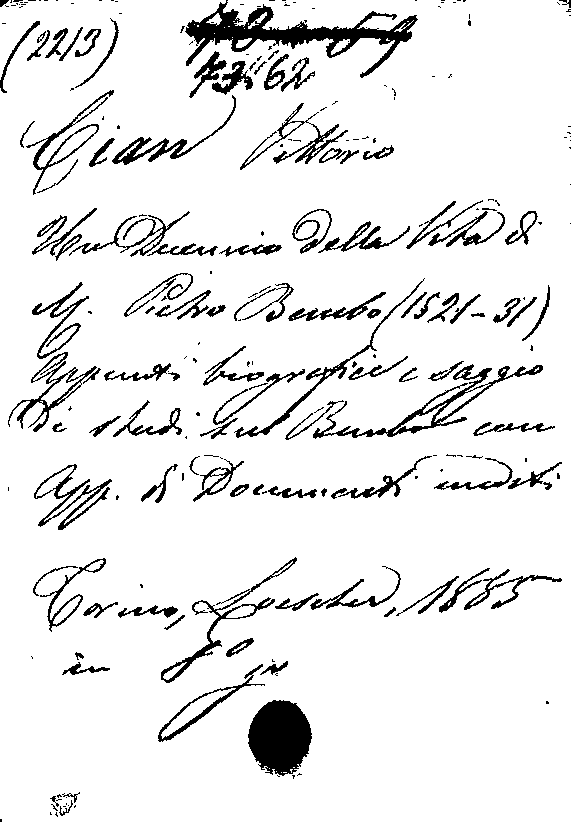 (2213)
73.62
Cian Vittorio
Un Decennio della Vita di
M. Pietro Bembo (1521-31)
Appunti biografici e saggio
Di studi sul Bembo con
App. di Documenti inediti
Torino, Loescher, 1885
in 8° gr